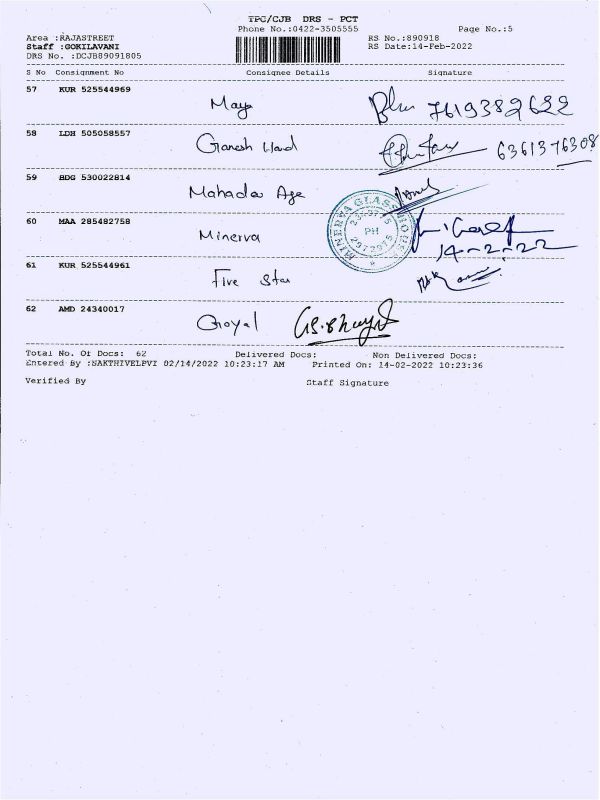 TPC/CJB DRS - PCT
Phone No.:0422-3505555
Page No.:5
Area :RAJASTREET
RS No.:890918
Staff :GOKILAVANI
RS Date:14-Feb-2022
DRS No. :DCJB89091805
S No Consignment No Consignee Details Signature
57 KUR 525544969
May 7619382622
58 LDH 505058557
Ganesh 6361376308
59 BDG 530022814
Mahadev Age
60 MAA 285482758
Minerva
MINERVA GLASS HOUSE
PH
2972975
14-2-22
61 KUR 525544961
Five Star
62 AMD 24340017
Goyal
Total No. Of Docs: 62 Delivered Docs: Non Delivered Docs:
Entered By :NAKTHIVELPVI 02/14/2022 10:23:17 AM Printed On: 14-02-2022 10:23:36
Verified By Staff Signature